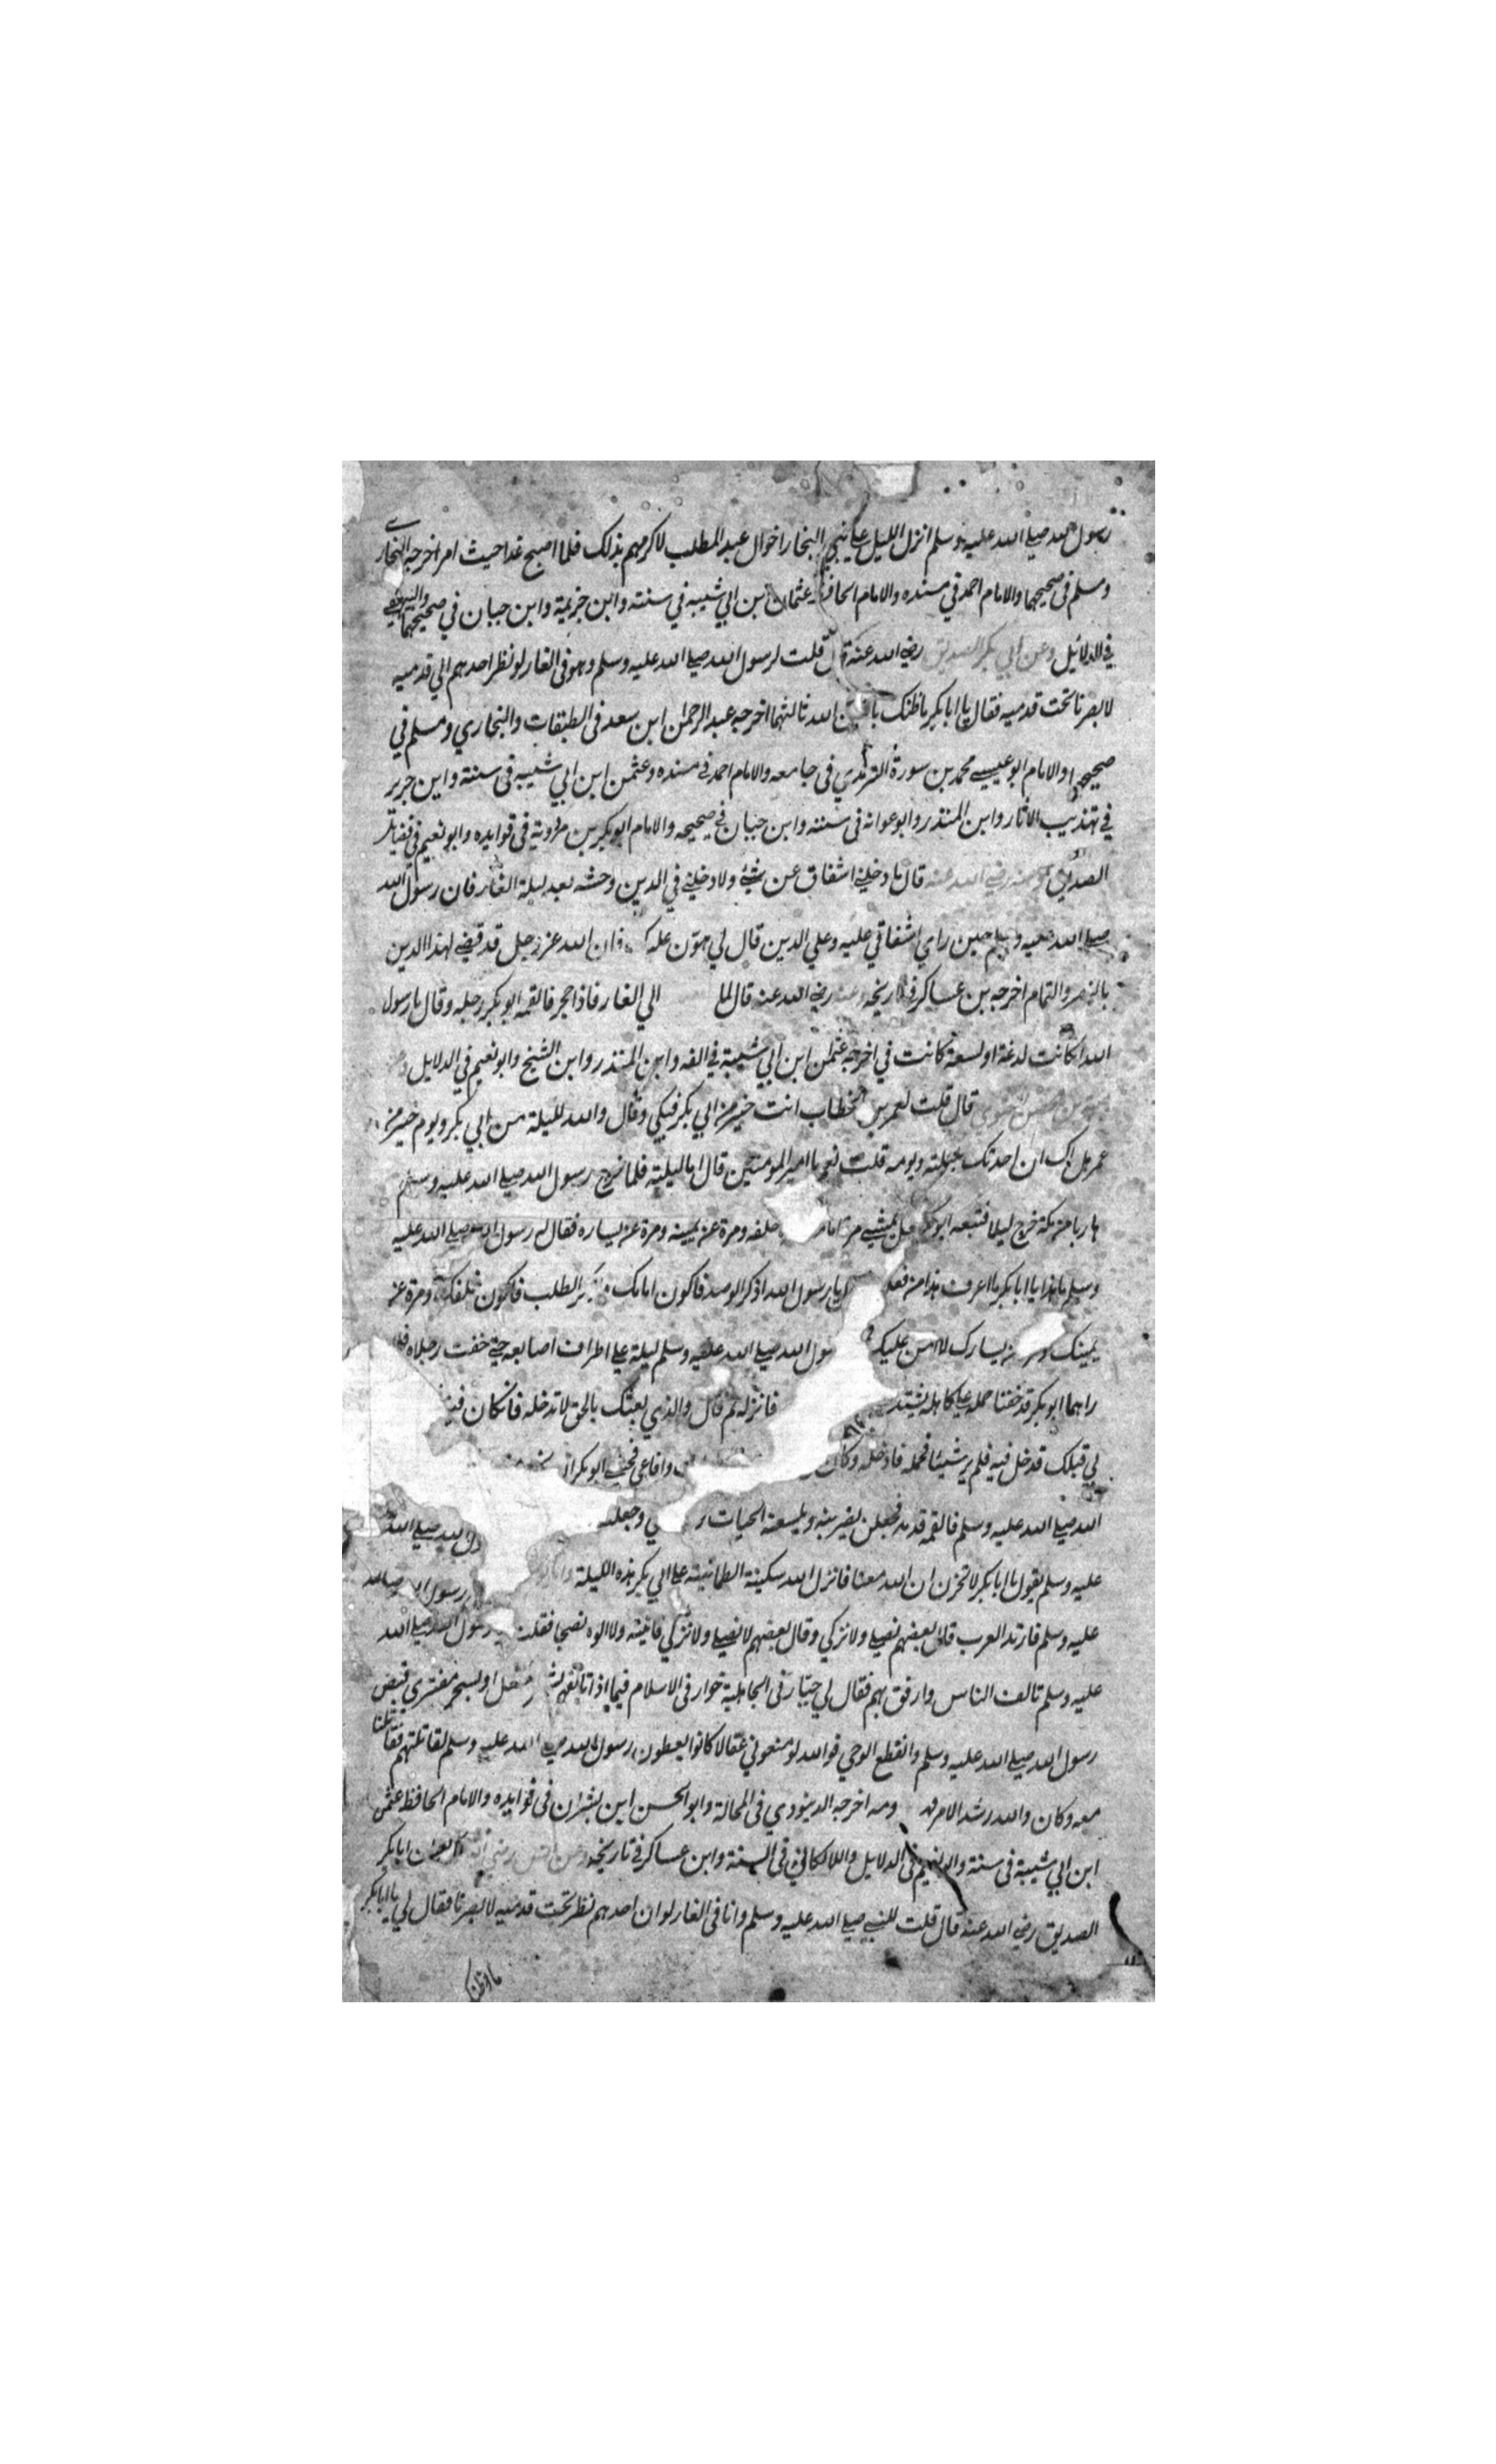 رسول الله صلى الله عليه وسلم انزل الليل على بني النجار اخوال عبد المطلب لاكرمهم بذلك فلما اصبح غدا حيث امر اخرجه البخاري
ومسلم في صحيحهما والامام احمد في مسنده والامام الحافظ عثمان بن ابي شيبه في سنته وابن خزيمة وابن حبان في صحيحهما والبيهقي
في الدلائل وعن ابي بكر الصديق رضي الله عنه قال قلت لرسول الله صلى الله عليه وسلم وهو في الغار لو نظر احدهم الي قدميه
لابصرنا تحت قدميه فقال يا ابا بكر ما ظنك باثنين الله ثالثهما اخرجه عبد الرحمن ابن سعد في الطبقات والبخاري ومسلم في
صحيحهما والامام ابو عيسى محمد بن سورة الترمذي في جامعه والامام احمد في مسنده وعثمن ابن ابي شيبه في سنته وابن جرير
في تهذيب الاثار وابن المنذر وابو عوانه في سننه وابن حبان في صحيحه والامام ابو بكر بن مردويه في فوايده وابو نعيم في فضايل
الصديق وعنه رضي الله عنه قال ما دخلني اشفاق عن شئ ولا دخلني في الدين وحشه بعد ليلة الغار فان رسول الله
صلى الله عليه وسلم حين راي اشفاقي عليه وعلي الدين قال لي هون عليك فان الله عز وجل قد قضى لهذا الدين
بالنصر والتمام اخرجه بن عساكر في تاريخه وعنه رضي الله عنه قال لما الي الغار فاذا حجر فالقمه ابو بكر رجليه وقال يا رسول
الله ان كانت لدغة او لسعة كانت في اخرجه عثمن ابن ابي شيبة في الفه وابن المنذر وابن الشيخ وابو نعيم في الدلايل
قال قلت لعمر بن الخطاب انت خير من ابي بكر فبكي وقال والله لليلة من ابي بكر ويوم خير من
عمر هل لك ان احدثك بليلته ويومه قلت نعم يا امير المومنين قال اما ليلته فلما خرج رسول الله صلى الله عليه وسلم
هاربا من مكة خرج ليلا فتبعه ابو بكر فجعل يمشي مرة امامه خلفه ومرة عن يمينه ومرة عن يساره فقال له رسول الله صلى الله عليه
وسلم ما هذا يا ابا بكر ما اعرف هذا من فعلك يا رسول الله اذكر الرصد فاكون امامك الطلب فاكون خلفك ومرة عن
يمينك ومرة عن يسارك لا امن عليك رسول الله صلى الله عليه وسلم ليلة على اطراف اصابعه حتى خفت رجلاه فلما
راهما ابو بكر قد خفتا حمله على كاهله يشتد فانزله ثم قال والذي بعثك بالحق لا تدخله فان كان فيه
بي قبلك قد خل فيه فلم ير شيئا فحمله فادخله وكان وافاعي فخشي ابو بكر
الله صلى الله عليه وسلم فالقمه قدمه فجعلن يضربنه ويلسعنه الحيات وجعلت رسول الله صلى الله
عليه وسلم يقول يا ابا بكر لا تحزن ان الله معنا فانزل الله سكينة الطمانينة على ابي بكر هذه الليلة رسول الله صلى الله
عليه وسلم فارتد العرب قال بعضهم نصلى ولا نزكي وقال بعضهم لا نصلى ولا نزكي فاتيته ولا الوه نصحا فقلت رسول الله صلى الله
عليه وسلم تالف الناس وارفق بهم فقال لي جبار في الجاهلية خوار في الاسلام فبما ذا اتالفهم او بسحر مفتري قبض
رسول الله صلى الله عليه وسلم وانقطع الوحي فوالله لو منعوني عقالا كانوا يعطون رسول الله صلى الله عليه وسلم لقاتلتهم فقاتلنا
معه وكان والله رشد الامر اخرجه الدينوري في المجالة وابو الحسن ابن بشران في فوايده والامام الحافظ عثمن
ابن ابي شيبة في سنته وابو نعيم في الدلايل واللالكائي في السنة وابن عساكر في تاريخه وعن انس رضي الله ان ابا بكر
الصديق رضي الله عنه قال قلت للنبي صلى الله عليه وسلم وانا في الغار لو ان احدهم نظر تحت قدميه لابصرنا فقال لي يا ابا بكر
ما ظنك